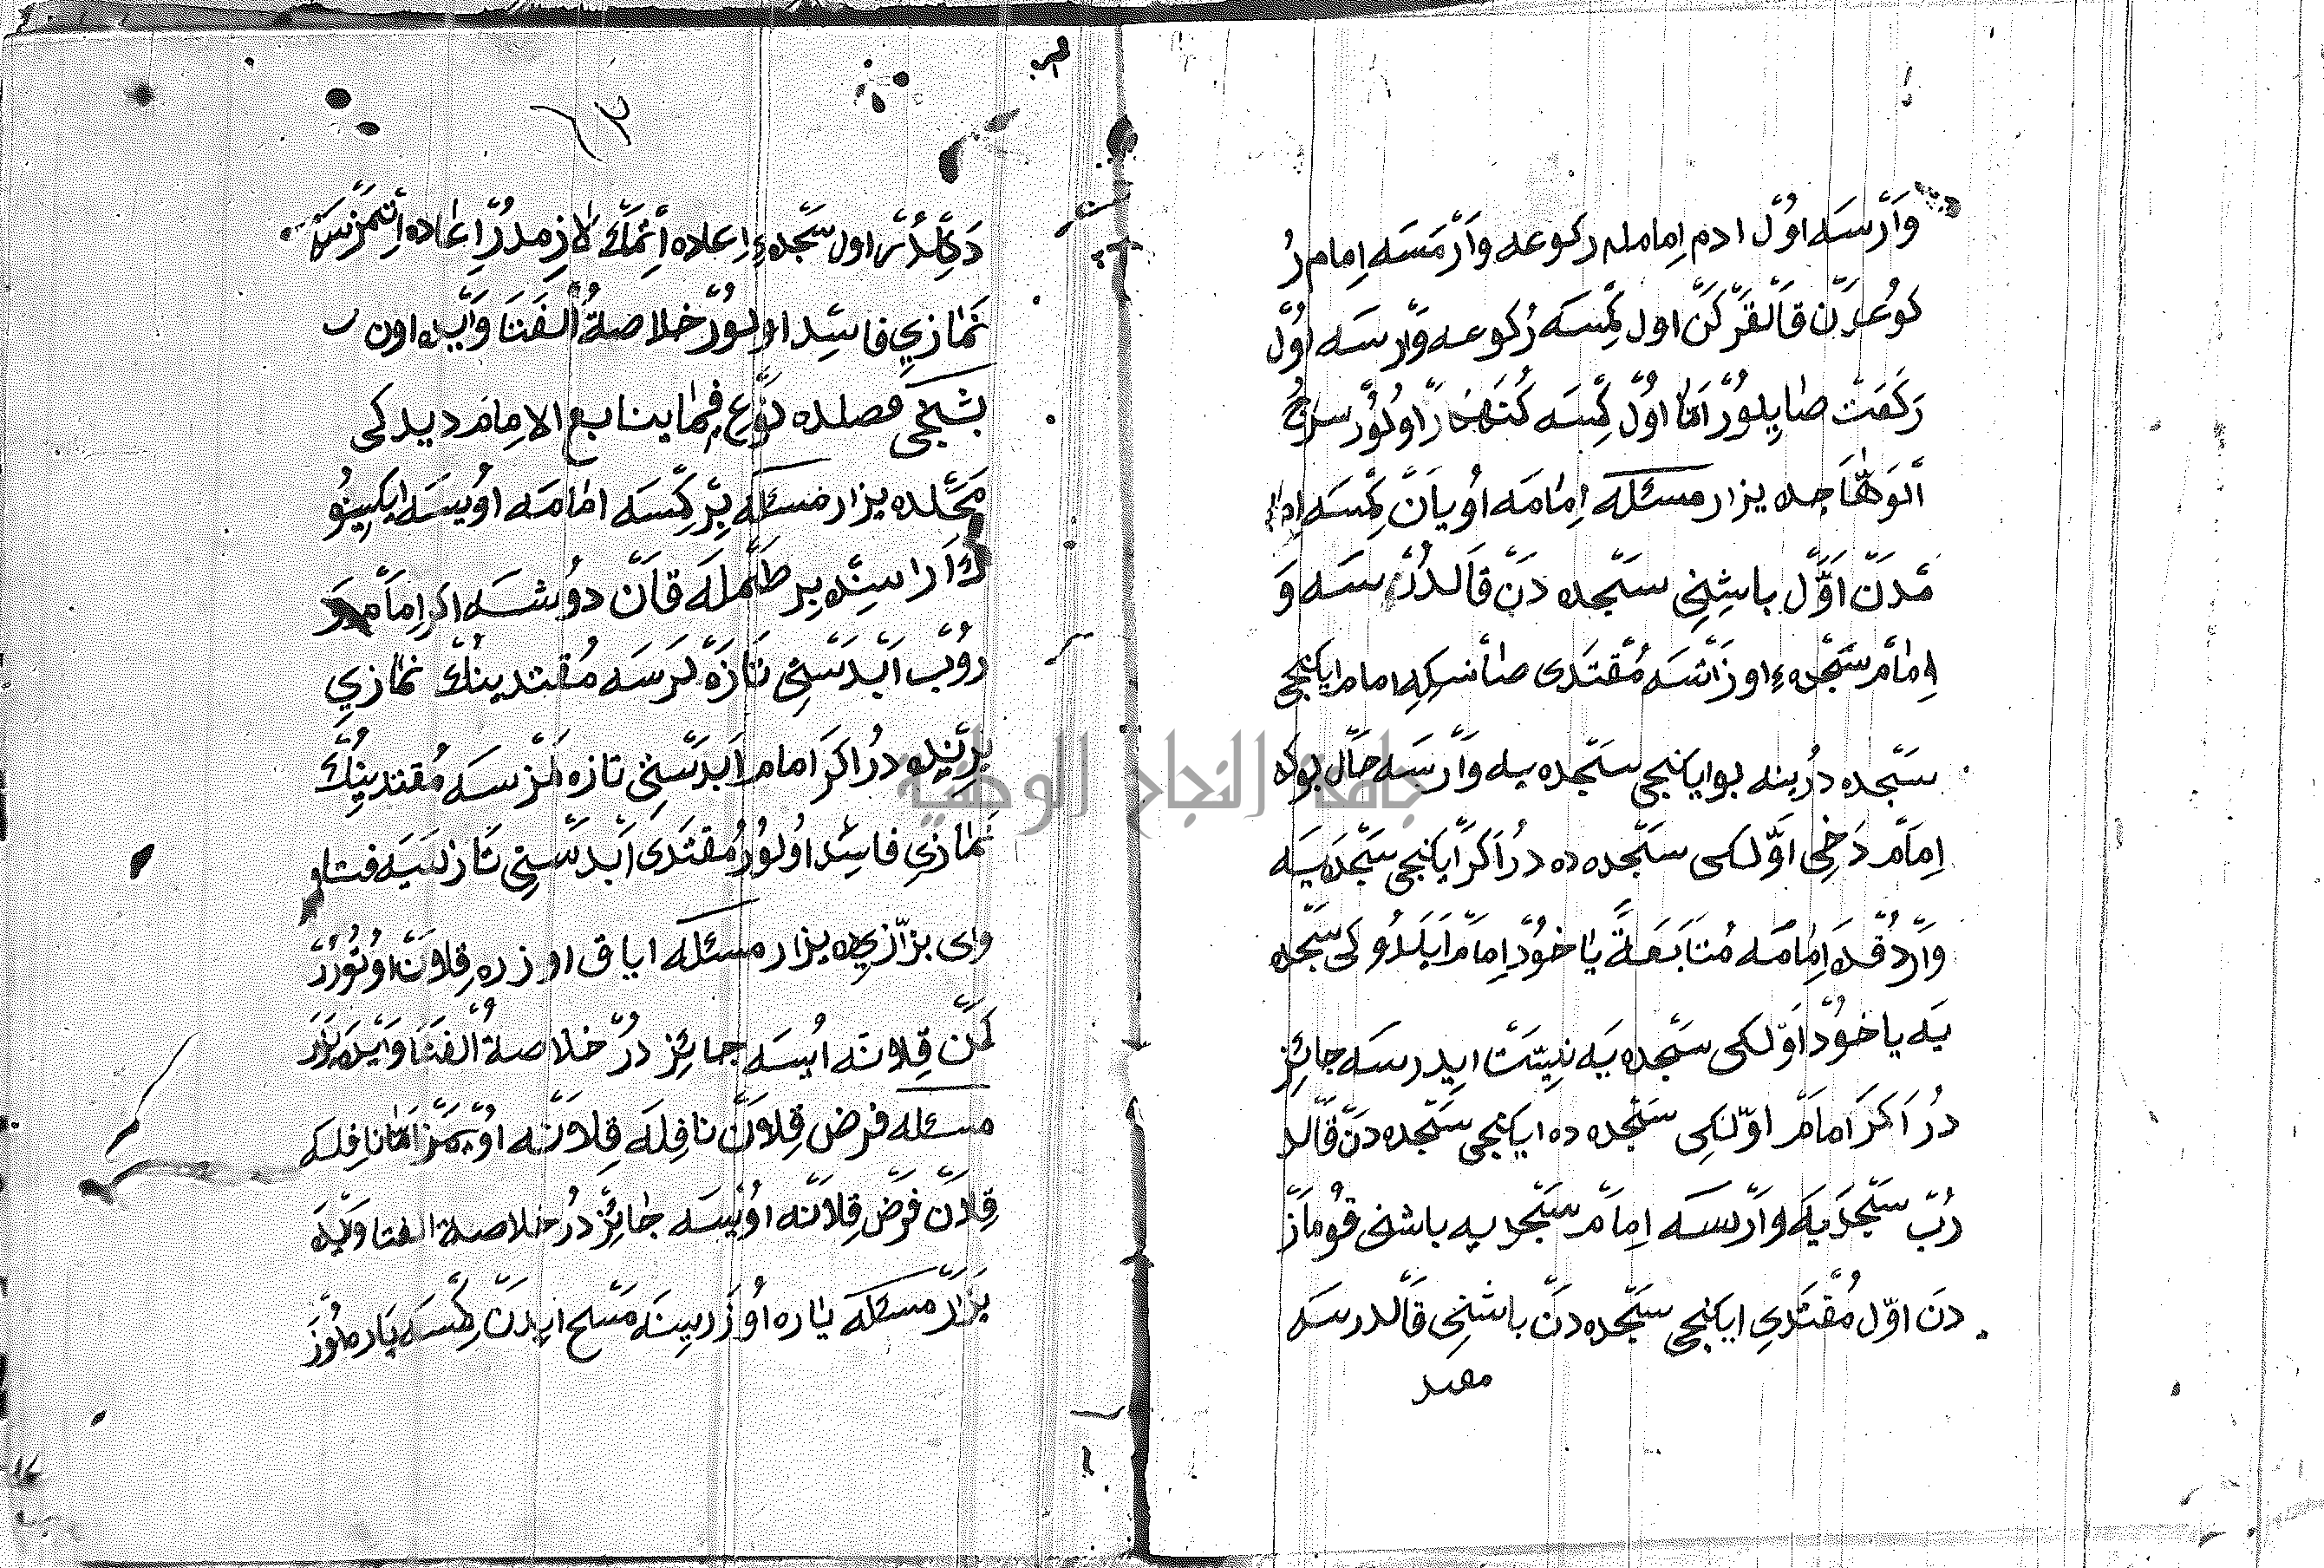 وَارْسَه اوُلْ ادم اِمامله ركوعه وَارْمَسَه اِمام رُ
كوُعدَنْ قَالْقَرْكَنْ اول كِمْسَه رُكوعه وَارسَه اوُلْ
رَكَعَتْ صَايِلوُرْ اَمَّا اوُلْ كِمْسَه كُنَهْكَارْ اوُلوُرْ سراجُ
اَلْوَهَّاجده يزار مسئله اِمَامَه اوُيَانْ كِمْسَه اما
مْدَنْ اَوَّلْ باشِنِى سَجْده دَنْ قَالدُرْسَه وَ
اِمَامْ سَجْدهءِ اوزَاتْسَه مُقْتَدى صَانْسَه كِه امام ايكنجى
سَجْده دُر ينه بو ايكنجى سَجْده يه وَارْسَه حَالْ بوكه
اِمَامْ دَخِى اَوَّلكى سَجْده ده دُر اَكَرْ ايكنجى سَجْدَه يَه
وَارْدُقدَه اِمَامَه مُتَابَعَةً يَا خوُدْ اِمَامْ اَيْلَدُوكى سَجْده
يَه يا خوُدْ اَوَّلكى سَجْده يَه نِيَّتْ ايدرسَه جائِز
دُر اَكَرَ امَامْ اوّلكِى سَجْده ده ايكنجى سَجْده دَنْ قَالد
رُبْ سَجْدَيَه وَارْسَه اِمَامْ سَجْديه باشنى قوُمَازْ
دَنْ اوّل مُقْتَدِى ايكنجى سَجْده دَنْ باشنِى قَالدرسَه
دَكِلْدُرْ اول سَجْدهءِ اِعاده اِتْمَكْ لَازِمدُرْ اِعَاده اِتْمَزسَه
نمَازِي فاسِد اولوُرْ خلاصةُ الفَتَاوَايده اون
بشنجى فصلده نَوْعٍ فِيمَا يتابع الامِام ديدكى
مَحَلده يزار مسئله بِرْ كِمْسَه امَامَه اوُيسَه ايكِينُو
كْ اَراسِنده بِر طَمْلَه قَانْ دوُشسَه اكر اِمَامْ
روُبْ اَبْدَسْتِنى تَازَه لَرسَه مُقتدينُكْ نمَازِي
يِرِنْده دُر اكَرَ امام اَبدَسْتِنِى تازه لَمَزسَه مُقتدينُكْ
نَمَازِي فاسِد اوُلوُر مُقتَدى اَبْدَسْتِنِى تَازلسَيَه فتا
واى بزّازيده يزار مسئله اياق اوزره قِلاَنْ اوُتُوُرْرْ
كَنْ قِلانَه اُيسَه جائِز دُرْ خلاصةُ الفَتَاوَايْده يَزَرَ
مسئله فرض قِلاَنْ نافِلَه قِلاَنَه اوُيمَز اَمَّا نافِلَه
قِلاَنْ فَرضْ قِلاَنَه اوُيسَه جَائِز دُر خلاصة الفتاوَيْدَه
يَزَارْ مسئله يَاره اوُزَرينَه مَسْح ايدَنْ كِمْسَه